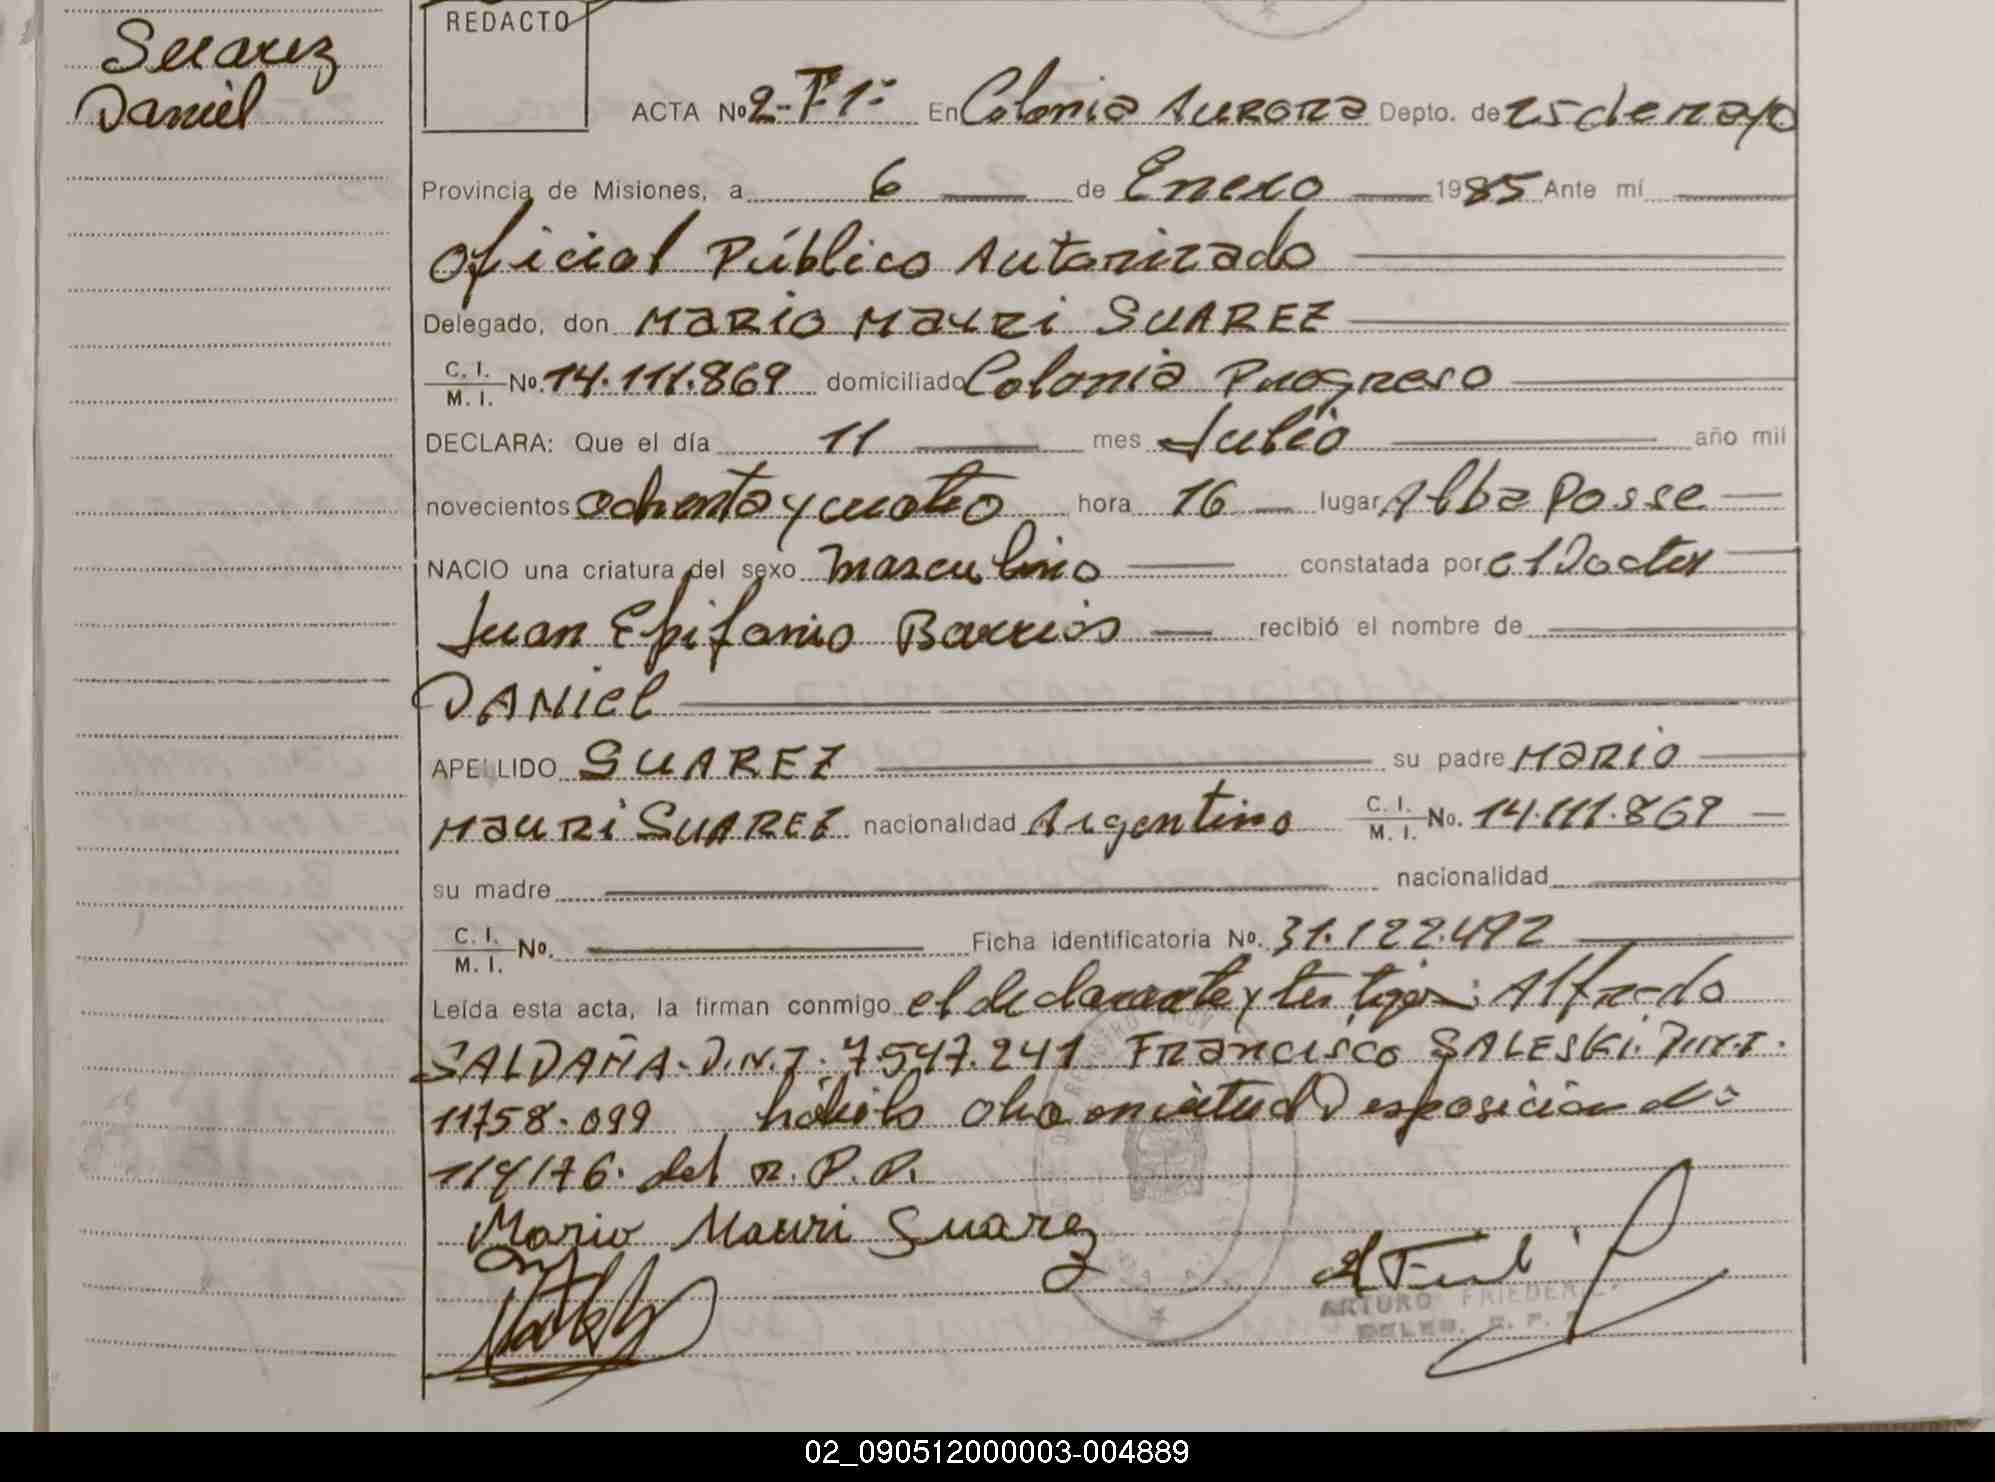 Suarez
Daniel
REDACTO
ACTA Nº 2-Fº1º En Colonia Aurora Depto. de 25 de mayo
Provincia de Misiones, a 6 de Enero 1985 Ante mí
Oficial Público Autorizado
Delegado, don MARIO MAURI SUAREZ
C. I. M. I. Nº. 14.111.869 domiciliado Colonia Progreso
DECLARA: Que el día 11 mes Julio año mil
novecientos ochenta y cuatro hora 16 lugar Alba Posse
NACIO una criatura del sexo masculino constatada por el Doctor
Juan Epifanio Barrios recibió el nombre de
DANIEL
APELLIDO SUAREZ su padre MARIO
MAURI SUAREZ nacionalidad Argentino C. I. M. I. No. 14.111.869
su madre nacionalidad
C. I. M. I. No. Ficha identificatoria Nº. 31.122.492
Leída esta acta, la firman conmigo el declarante y testigos: Alfredo
SALDAÑA-D.N.I. 7.547.241 FRANCISCO SALESKI. D.N.I.
11758.099 hábiles disposición
114/76. del R.P.P.
Mario Mauri Suarez
ARTURO FRIEDERIC
02_090512000003-004889